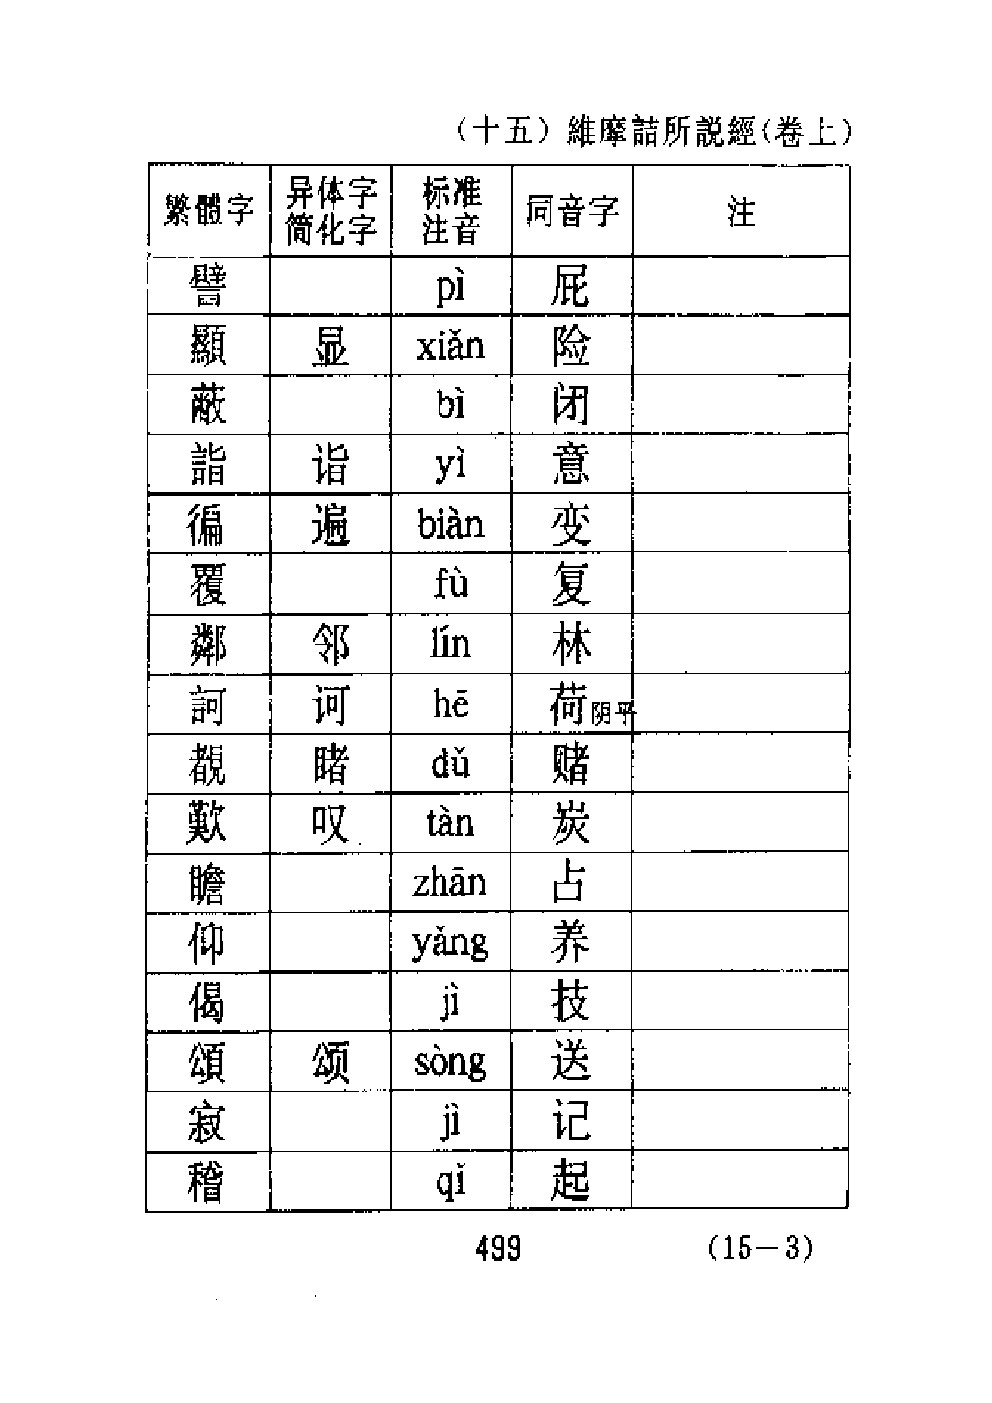 （十五）維摩詰所説經（卷上）
繁體字 异体字简化字 标准注音 同音字 注
譬 pì 屁
顯 显 xiǎn 险
蔽 bì 闭
詣 诣 yì 意
徧 遍 biàn 变
覆 fù 复
鄰 邻 lín 林
訶 诃 hē 荷阴平
覩 睹 dǔ 赌
歎 叹 tàn 炭
瞻 zhān 占
仰 yǎng 养
偈 jì 技
頌 颂 sòng 送
寂 jì 记
稽 qǐ 起
499 （15－3）